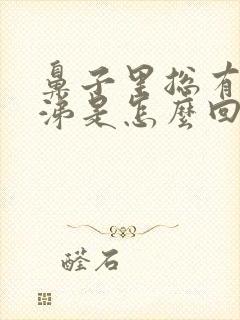 鼻子里总有
涕是怎麼回
醛石